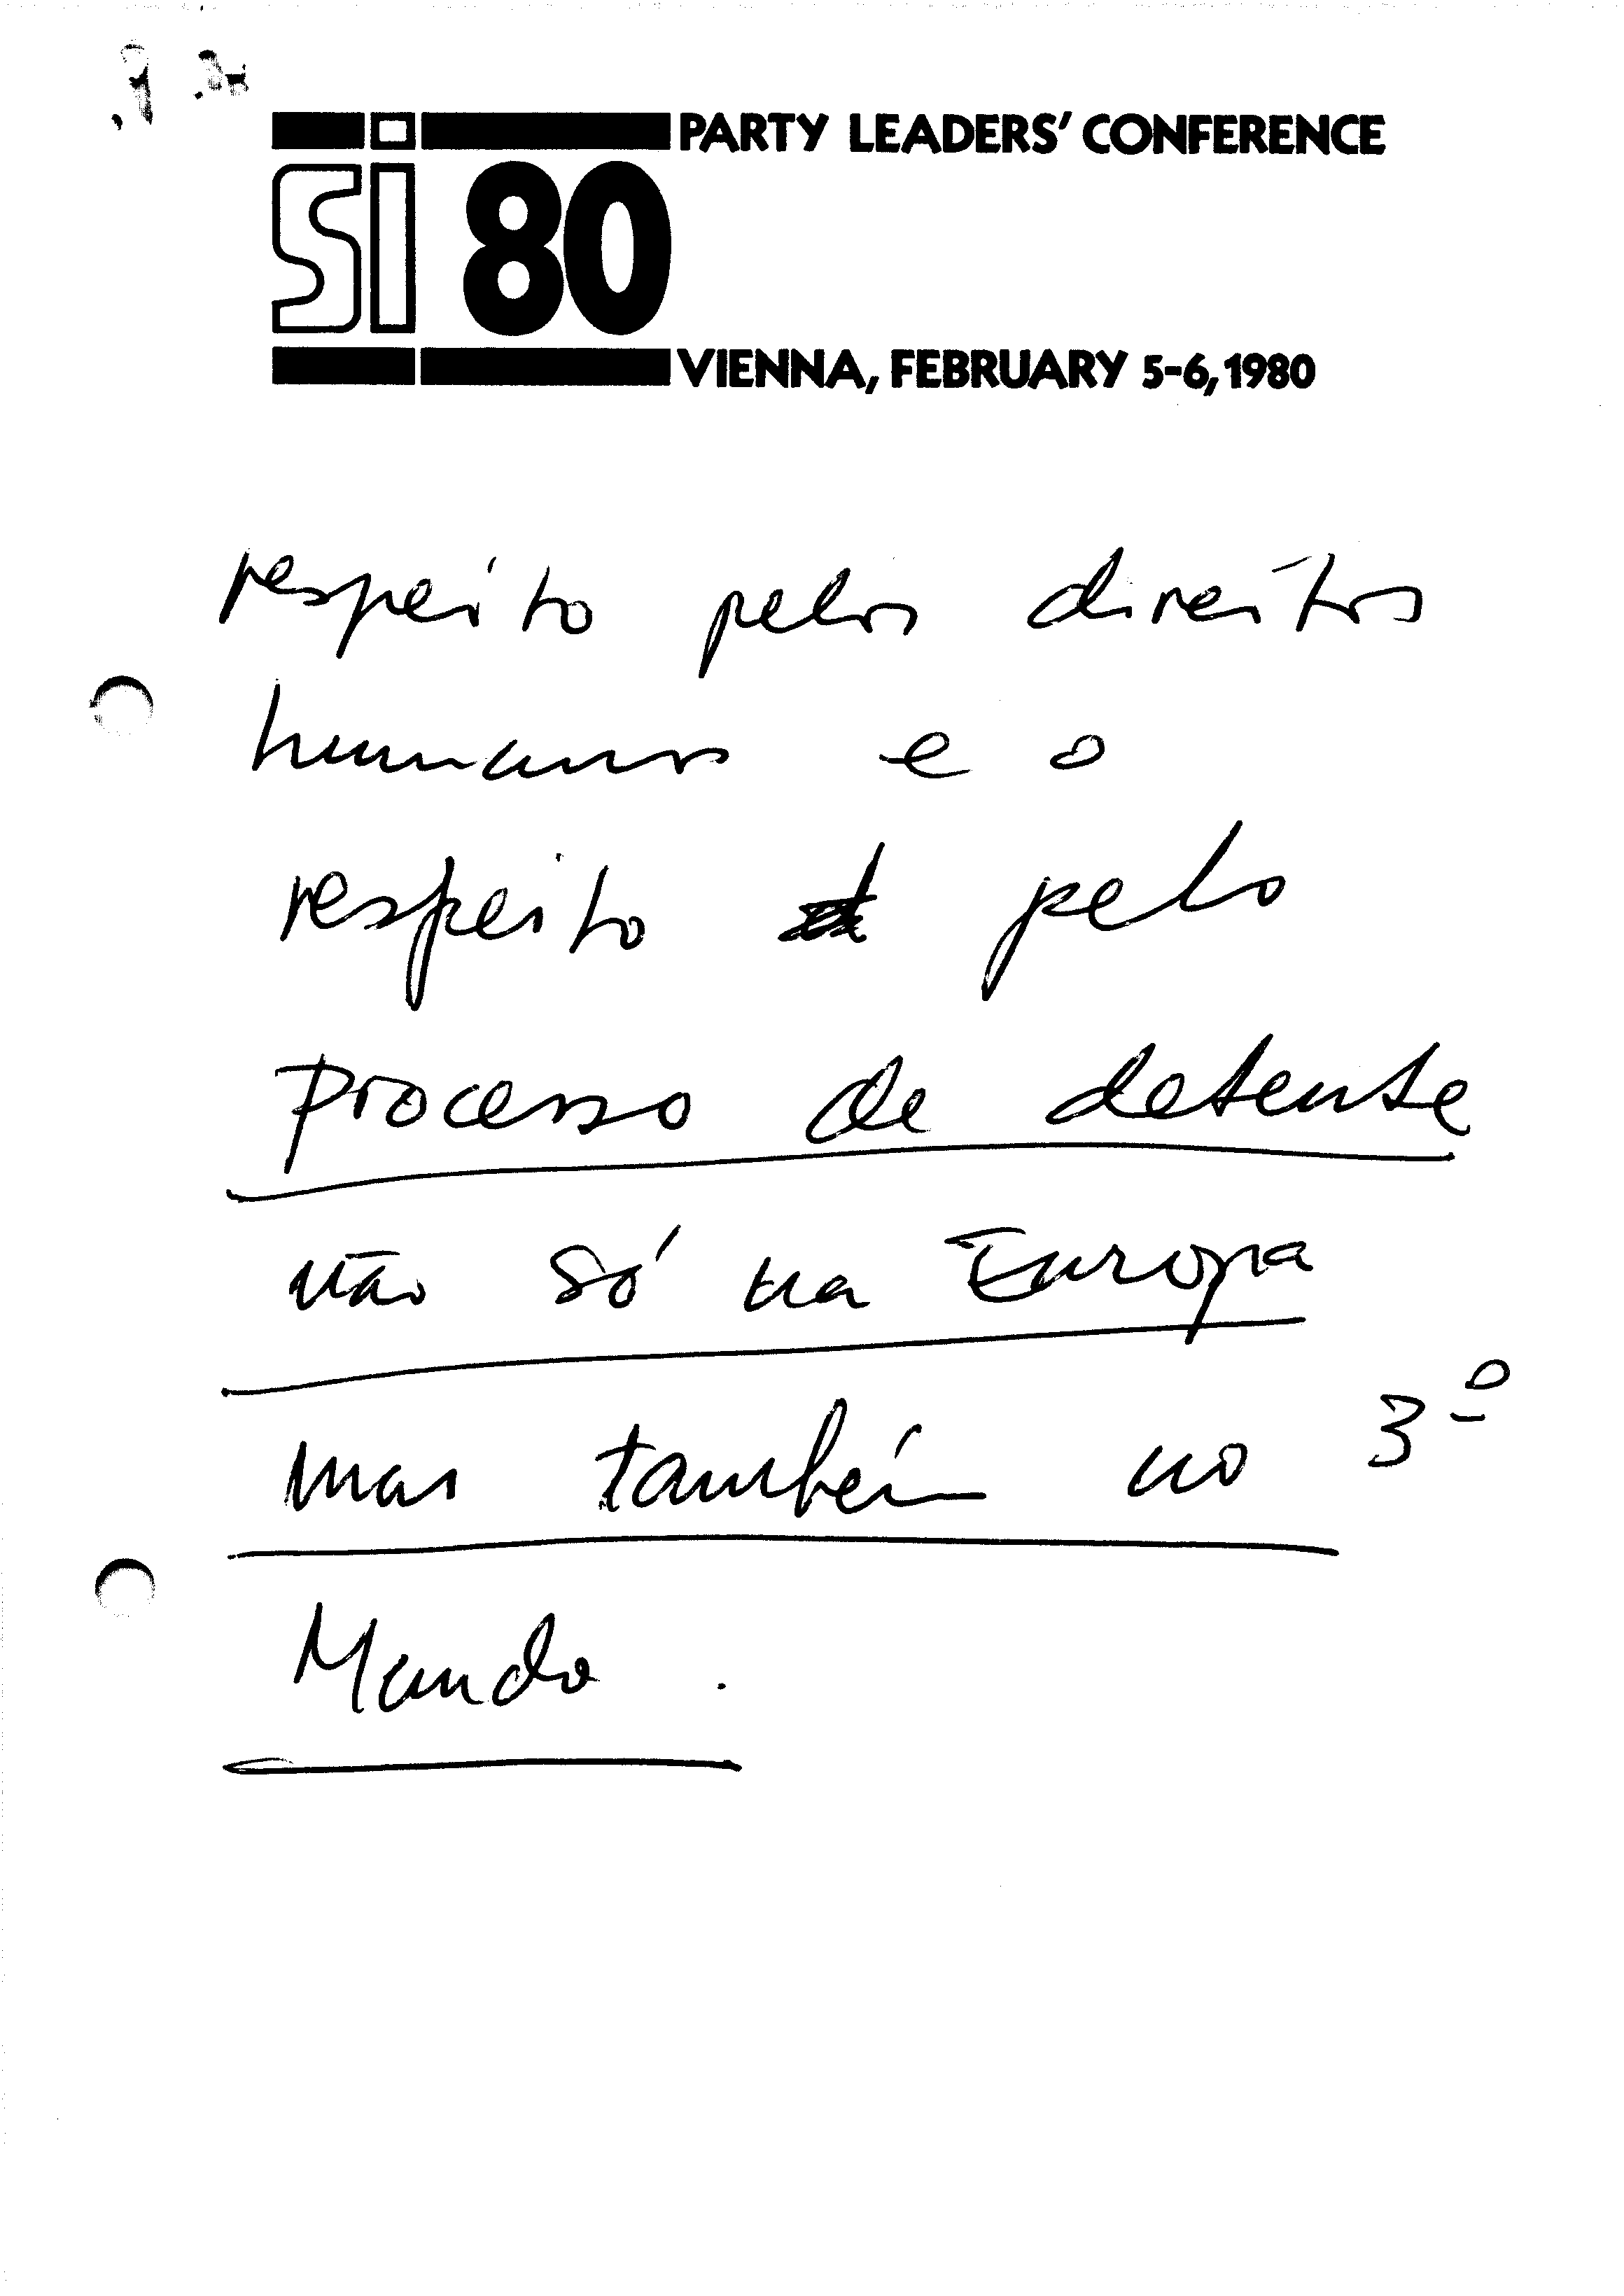 PARTY LEADERS' CONFERENCE
Si 80
VIENNA, FEBRUARY 5-6, 1980
respeito pelos direitos
humanos e o
respeito pelo
processo de detente
não só na Europa
mas também no 3º
Mundo.